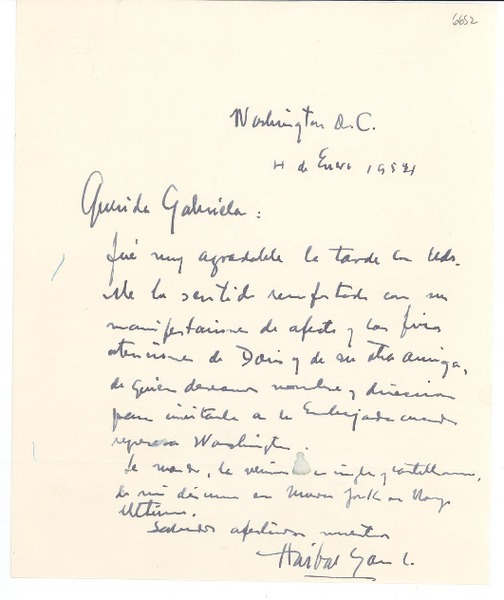 6652
Washington D.C.
4 de Enero 1954
Querida Gabriela:
Fué muy agradable la tarde con Uds.
Me he sentido reconfortado con sus
manifestaciones de afecto y las finas
atenciones de Doris y de su otra amiga,
de quien deseamos nombre y direccion
para invitarla a la Embajada cuando
regrese a Washington.
Le mando, la version en ingles y castellano,
de mi discurso en Nueva York en Mayo
último.
Saludos afectuosos nuestros